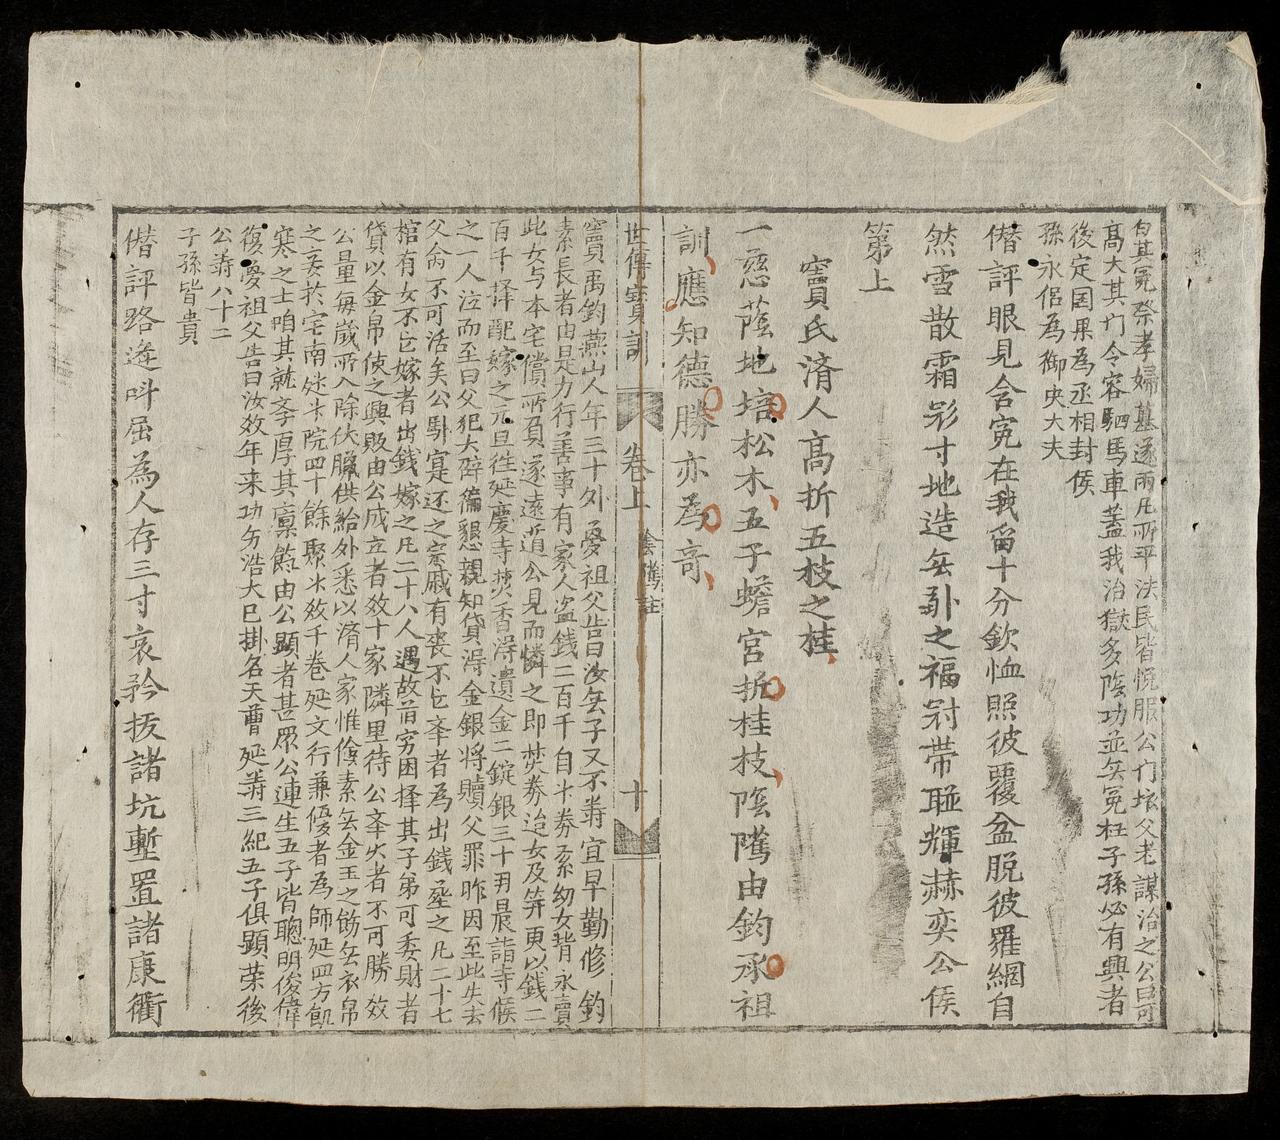 白其冤祭孝婦墓遂雨凡所平法民皆悅服公门坏父老謀治之公曰可
高大其门令容駟馬車蓋我治獄多陰功並無冤枉子孫必有興者
後定国果為丞相封侯
孫永侶為御史大夫
僭評眼見含冤在我留十分欽恤照彼覆盆脱彼羅網自
然雪散霜 寸地造無 之福 帶聯輝赫奕公侯
第上
竇氏済人高折五枝之桂
一慈蔭地培松木五子蟾宮折桂枝陰隲由鈞承祖
訓應知德勝亦為奇
世傳寶訓 卷上 陰隲註 十
竇禹鈞燕山人年三十外夢祖父告曰汝無子又不壽宜早勤修 鈞
素長者由是力行善事有家人盗銭二百千自 券系幼女背永賣
此女与本宅償所負遂遠逃公見而憐之即焚券迨女及笄更以銭二
百千擇配嫁之元旦徃延慶寺焚香淂遺金二錠銀三十 晨詣寺候
之一人泣而至曰父犯大辟徧懇親知貸淂金銀将贖父罪昨因至此失去
父命不可活矣公 寔还之宗戚有喪不 者為出銭 之凡二十七
棺有女不 嫁者出銭嫁之凡二十八人遇故旧穷困择其子弟可委財者
貸以金帛使之興販由公成立者效十家隣里待公 火者不可勝效
公量每歲所入除伏臘供給外悉以済人家惟儉素無金玉之餙無衣帛
之妾於宅南 院四十餘聚 效千卷延文行兼優者為師延四方飢
寒之士咱其就 厚其廪餼由公顯者甚眾公連生五子皆聰明俊偉
復夢祖父告曰汝效年来功 浩大已掛名天曹延壽三紀五子俱顕荣後
公壽八十二
子孫皆貴
僭評路 呌屈為人存三寸哀矜扳諸坑塹置諸康衢